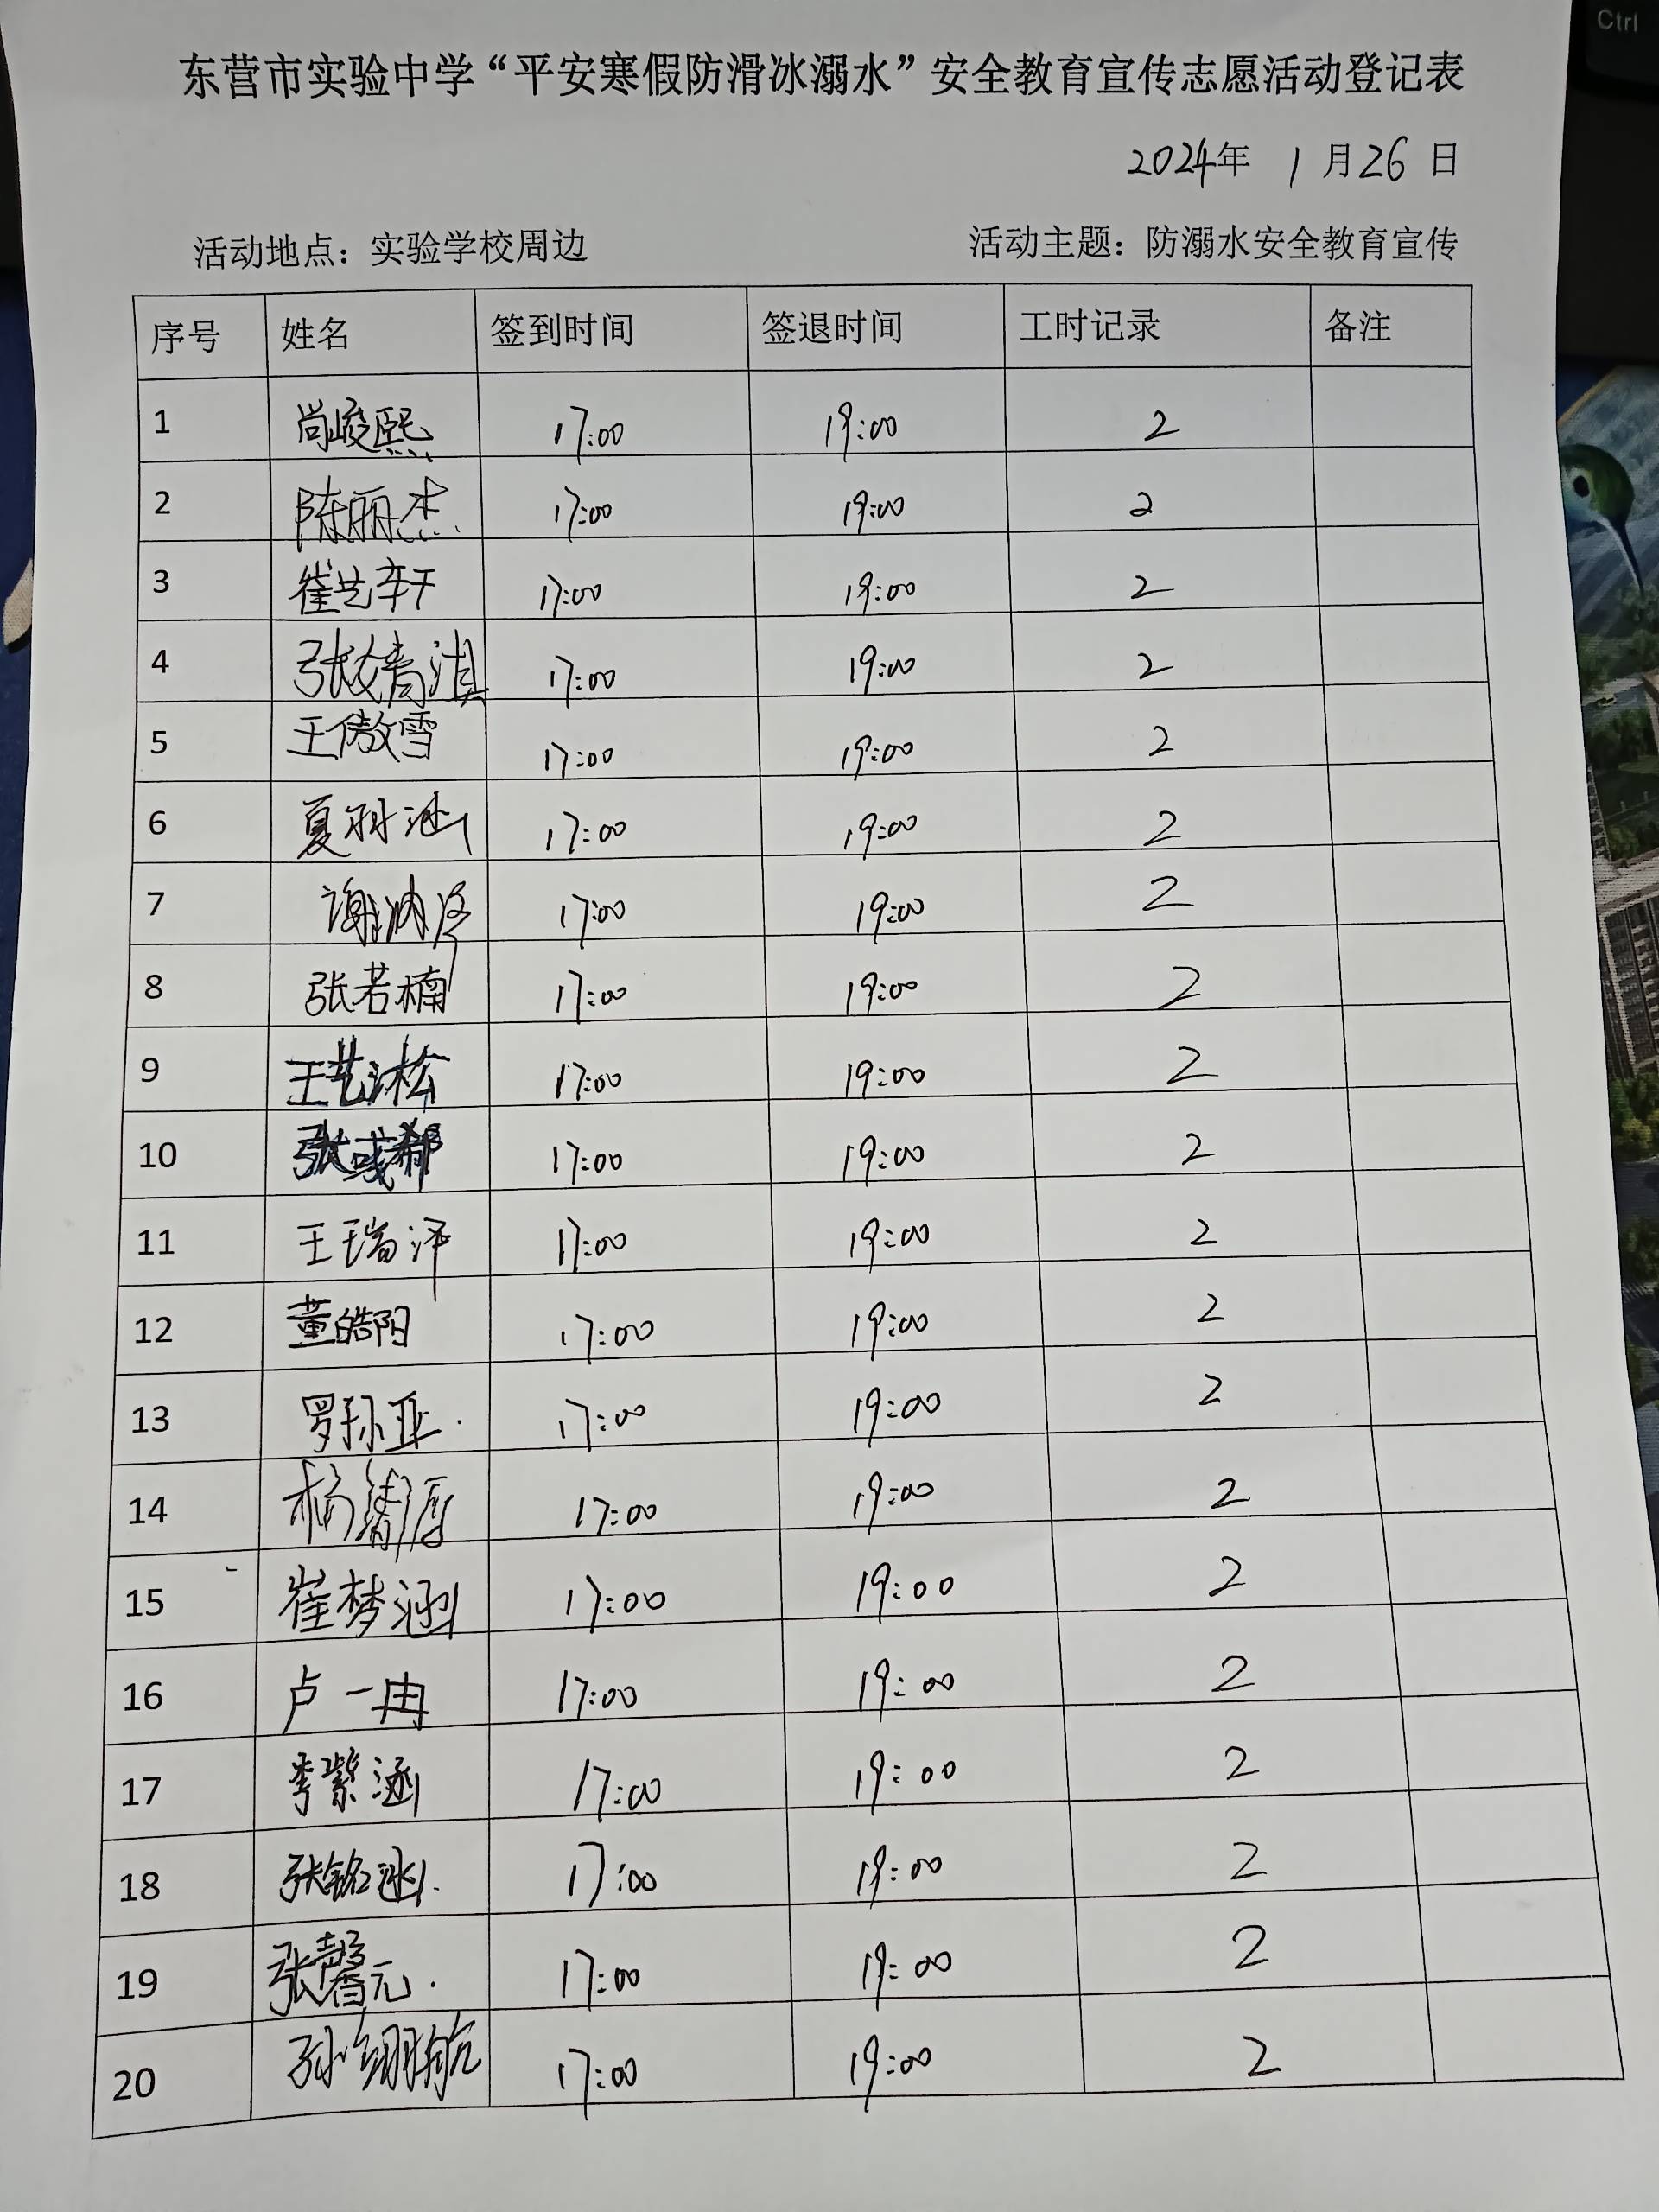 Ctrl
东营市实验中学“平安寒假防滑冰溺水”安全教育宣传志愿活动登记表
2024年 1 月 26 日
活动地点：实验学校周边 活动主题：防溺水安全教育宣传
序号 姓名 签到时间 签退时间 工时记录 备注
1 尚峻熙 17:00 19:00 2
2 陈丽杰 17:00 19:00 2
3 崔艺轩 17:00 19:00 2
4 张婧淇 17:00 19:00 2
5 王傲雪 17:00 19:00 2
6 夏 涵 17:00 19:00 2
7 谢 17:00 19:00 2
8 张若楠 17:00 19:00 2
9 王艺淞 17:00 19:00 2
10 张彧郗 17:00 19:00 2
11 王瑞泽 17:00 19:00 2
12 董皓阳 17:00 19:00 2
13 罗 亚 17:00 19:00 2
14 杨 17:00 19:00 2
15 崔梦涵 17:00 19:00 2
16 卢一冉 17:00 19:00 2
17 李紫涵 17:00 19:00 2
18 张铭涵 17:00 19:00 2
19 张馨元 17:00 19:00 2
20 孙翊航 17:00 19:00 2